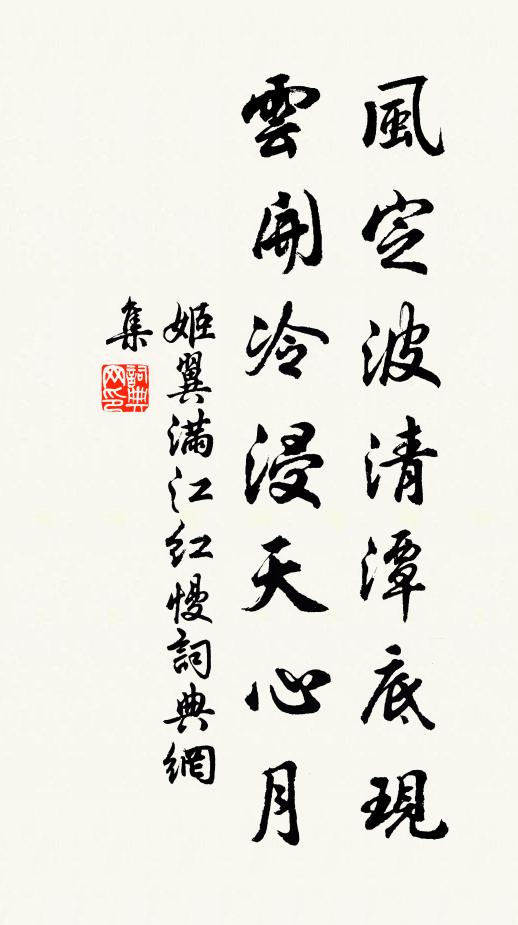 風定波清潭底現
雲開冷浸天心月
姬翼滿江紅慢詞典網
集
詞典
网印